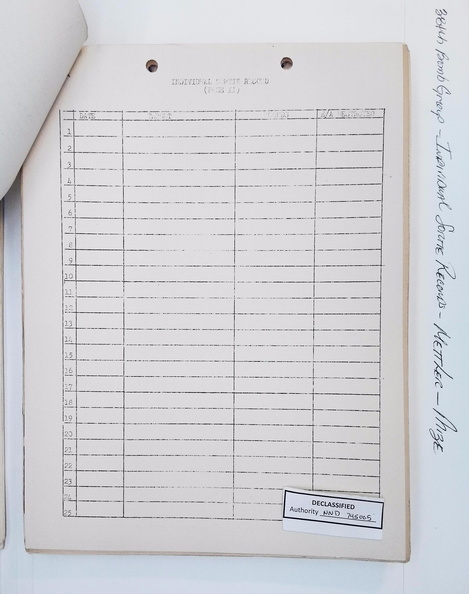 INDIVIDUAL SORTIE RECORD
(PAGE II)
DATE TARGET A/A DESTROYED
1
2
3
4
5
6
7
8
9
10
11
12
13
14
15
16
17
18
19
20
21
22
23
24
25
DECLASSIFIED
Authority NND 745005
384th Bomb Group - Individual Sortie Record - Mettler - Mize